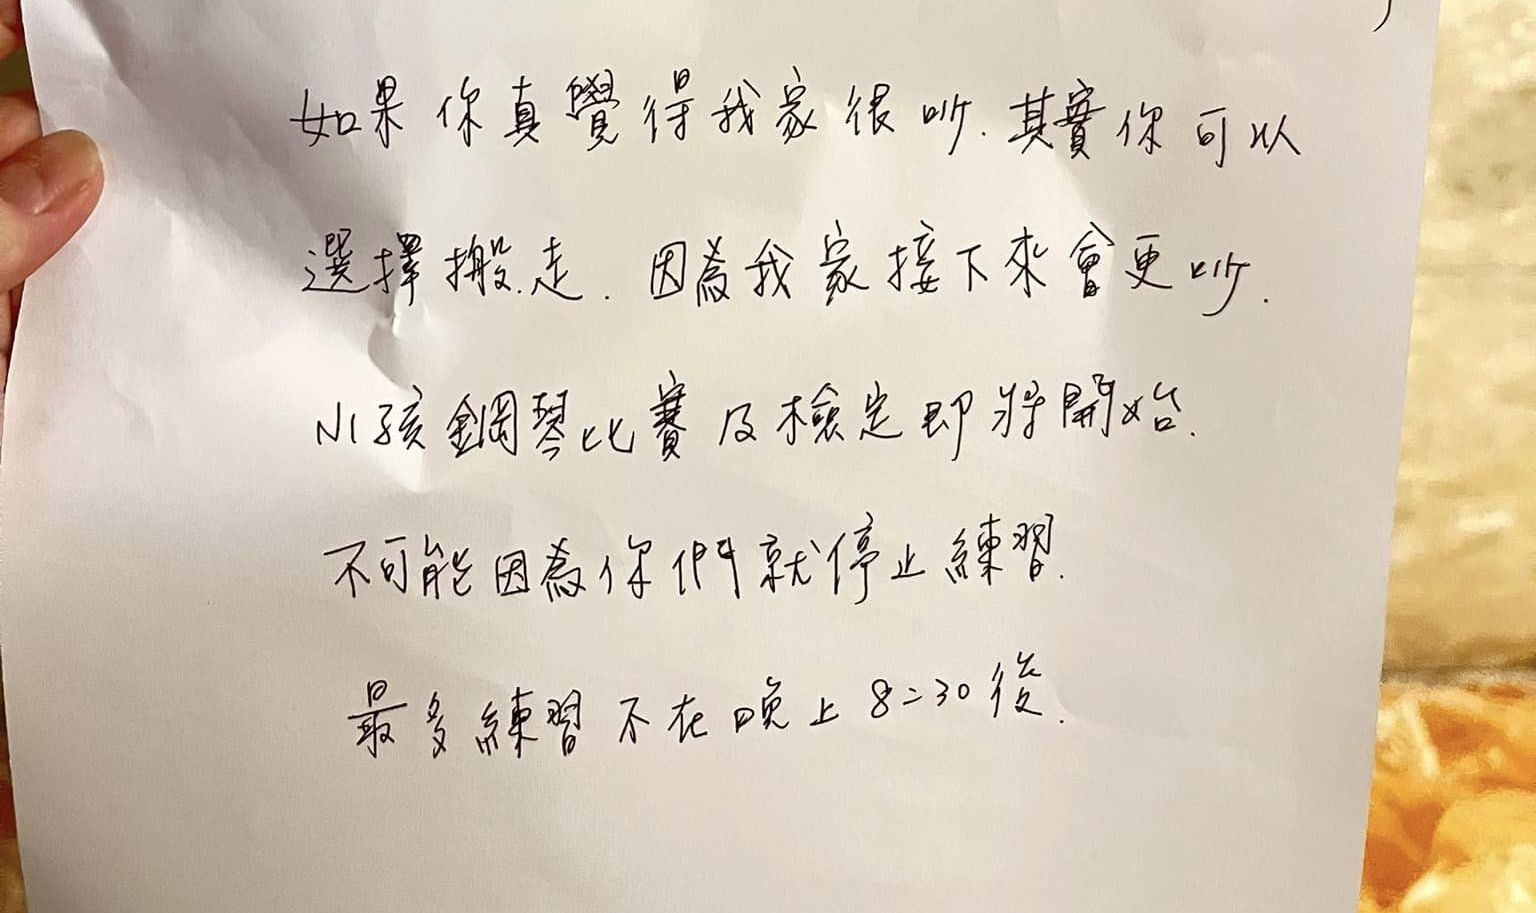 如果你真覺得我家很吵.其實你可以
選擇搬走.因為我家接下來會更吵.
小孩鋼琴比賽及檢定即將開始.
不可能因為你們就停止練習.
最多練習不在晚上8:30後.